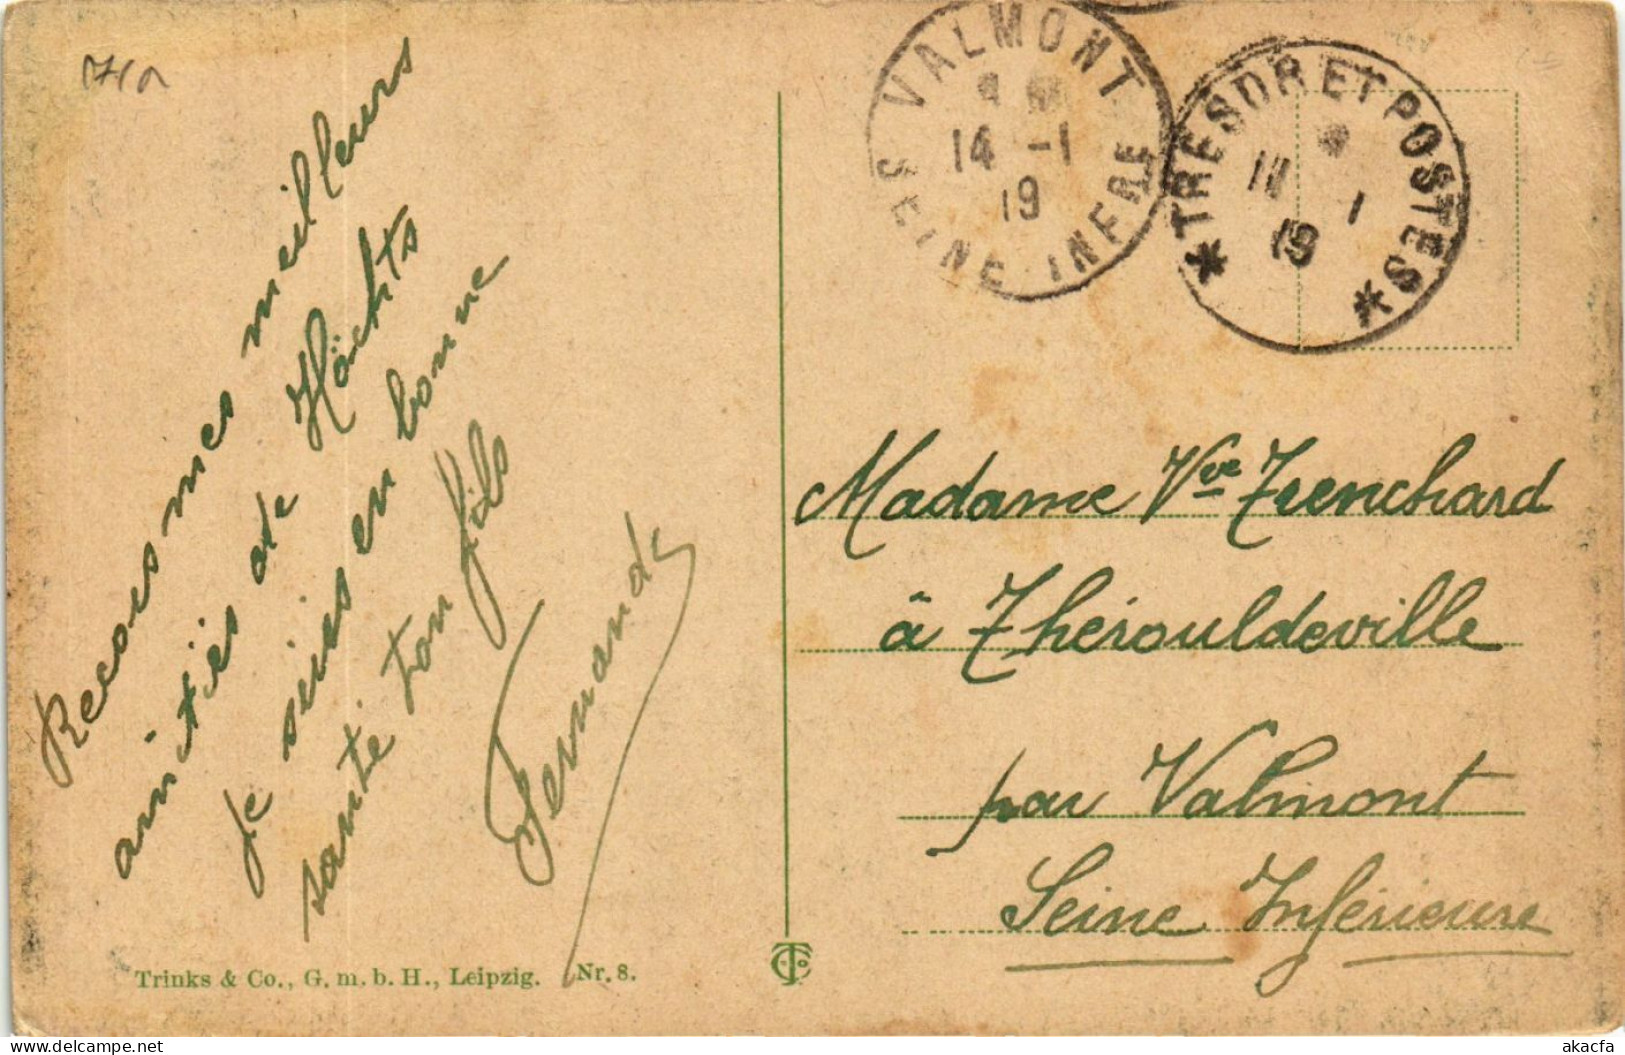 VALMONT
14 -1
19
SEINE INFRE
* TRESOR ET POSTES *
11 1
19
Recois mes meilleurs
amitiés de Höchts
je suis en bonne
santé ton fils
Fernand
Madame Vve Trenchard
à Thérouldeville
par Valmont
Seine Inférieure
Trinks & Co., G. m. b. H., Leipzig. Nr. 8.
akacfa